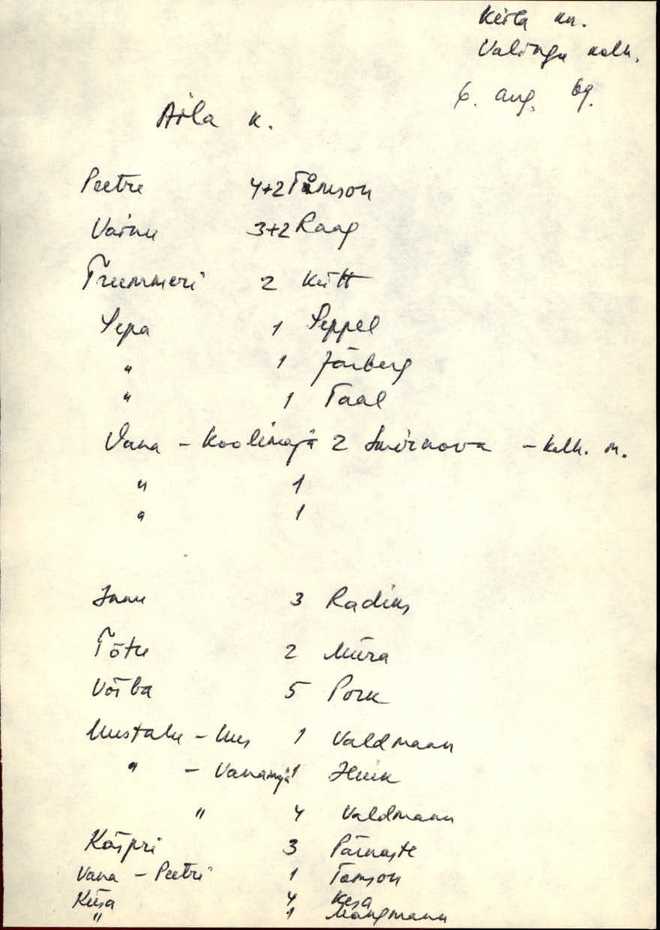 Keila kn.
Valingu kolh.
6. aug. 69.
Aila k.
Peetre 4+2 Tamson
Vainu 3+2 Raag
Treummeri 2 Kütt
Sepa 1 Seppel
" 1 Järberg
" 1 Taal
Vana - Koolimaja 2 Smirnova - kolh. m.
" 1
" 1
3 Radiks
Tõtu 2 Müra
Võiba 5 Pork
Mustalu - Uus 1 Valdmann
" - Vanamaja 1
" 4 Valdmann
Käspri 3 Pärnaste
Vana - Peetri 1 Tamson
Kiisa 4 Kesa
" 1 Mangmann